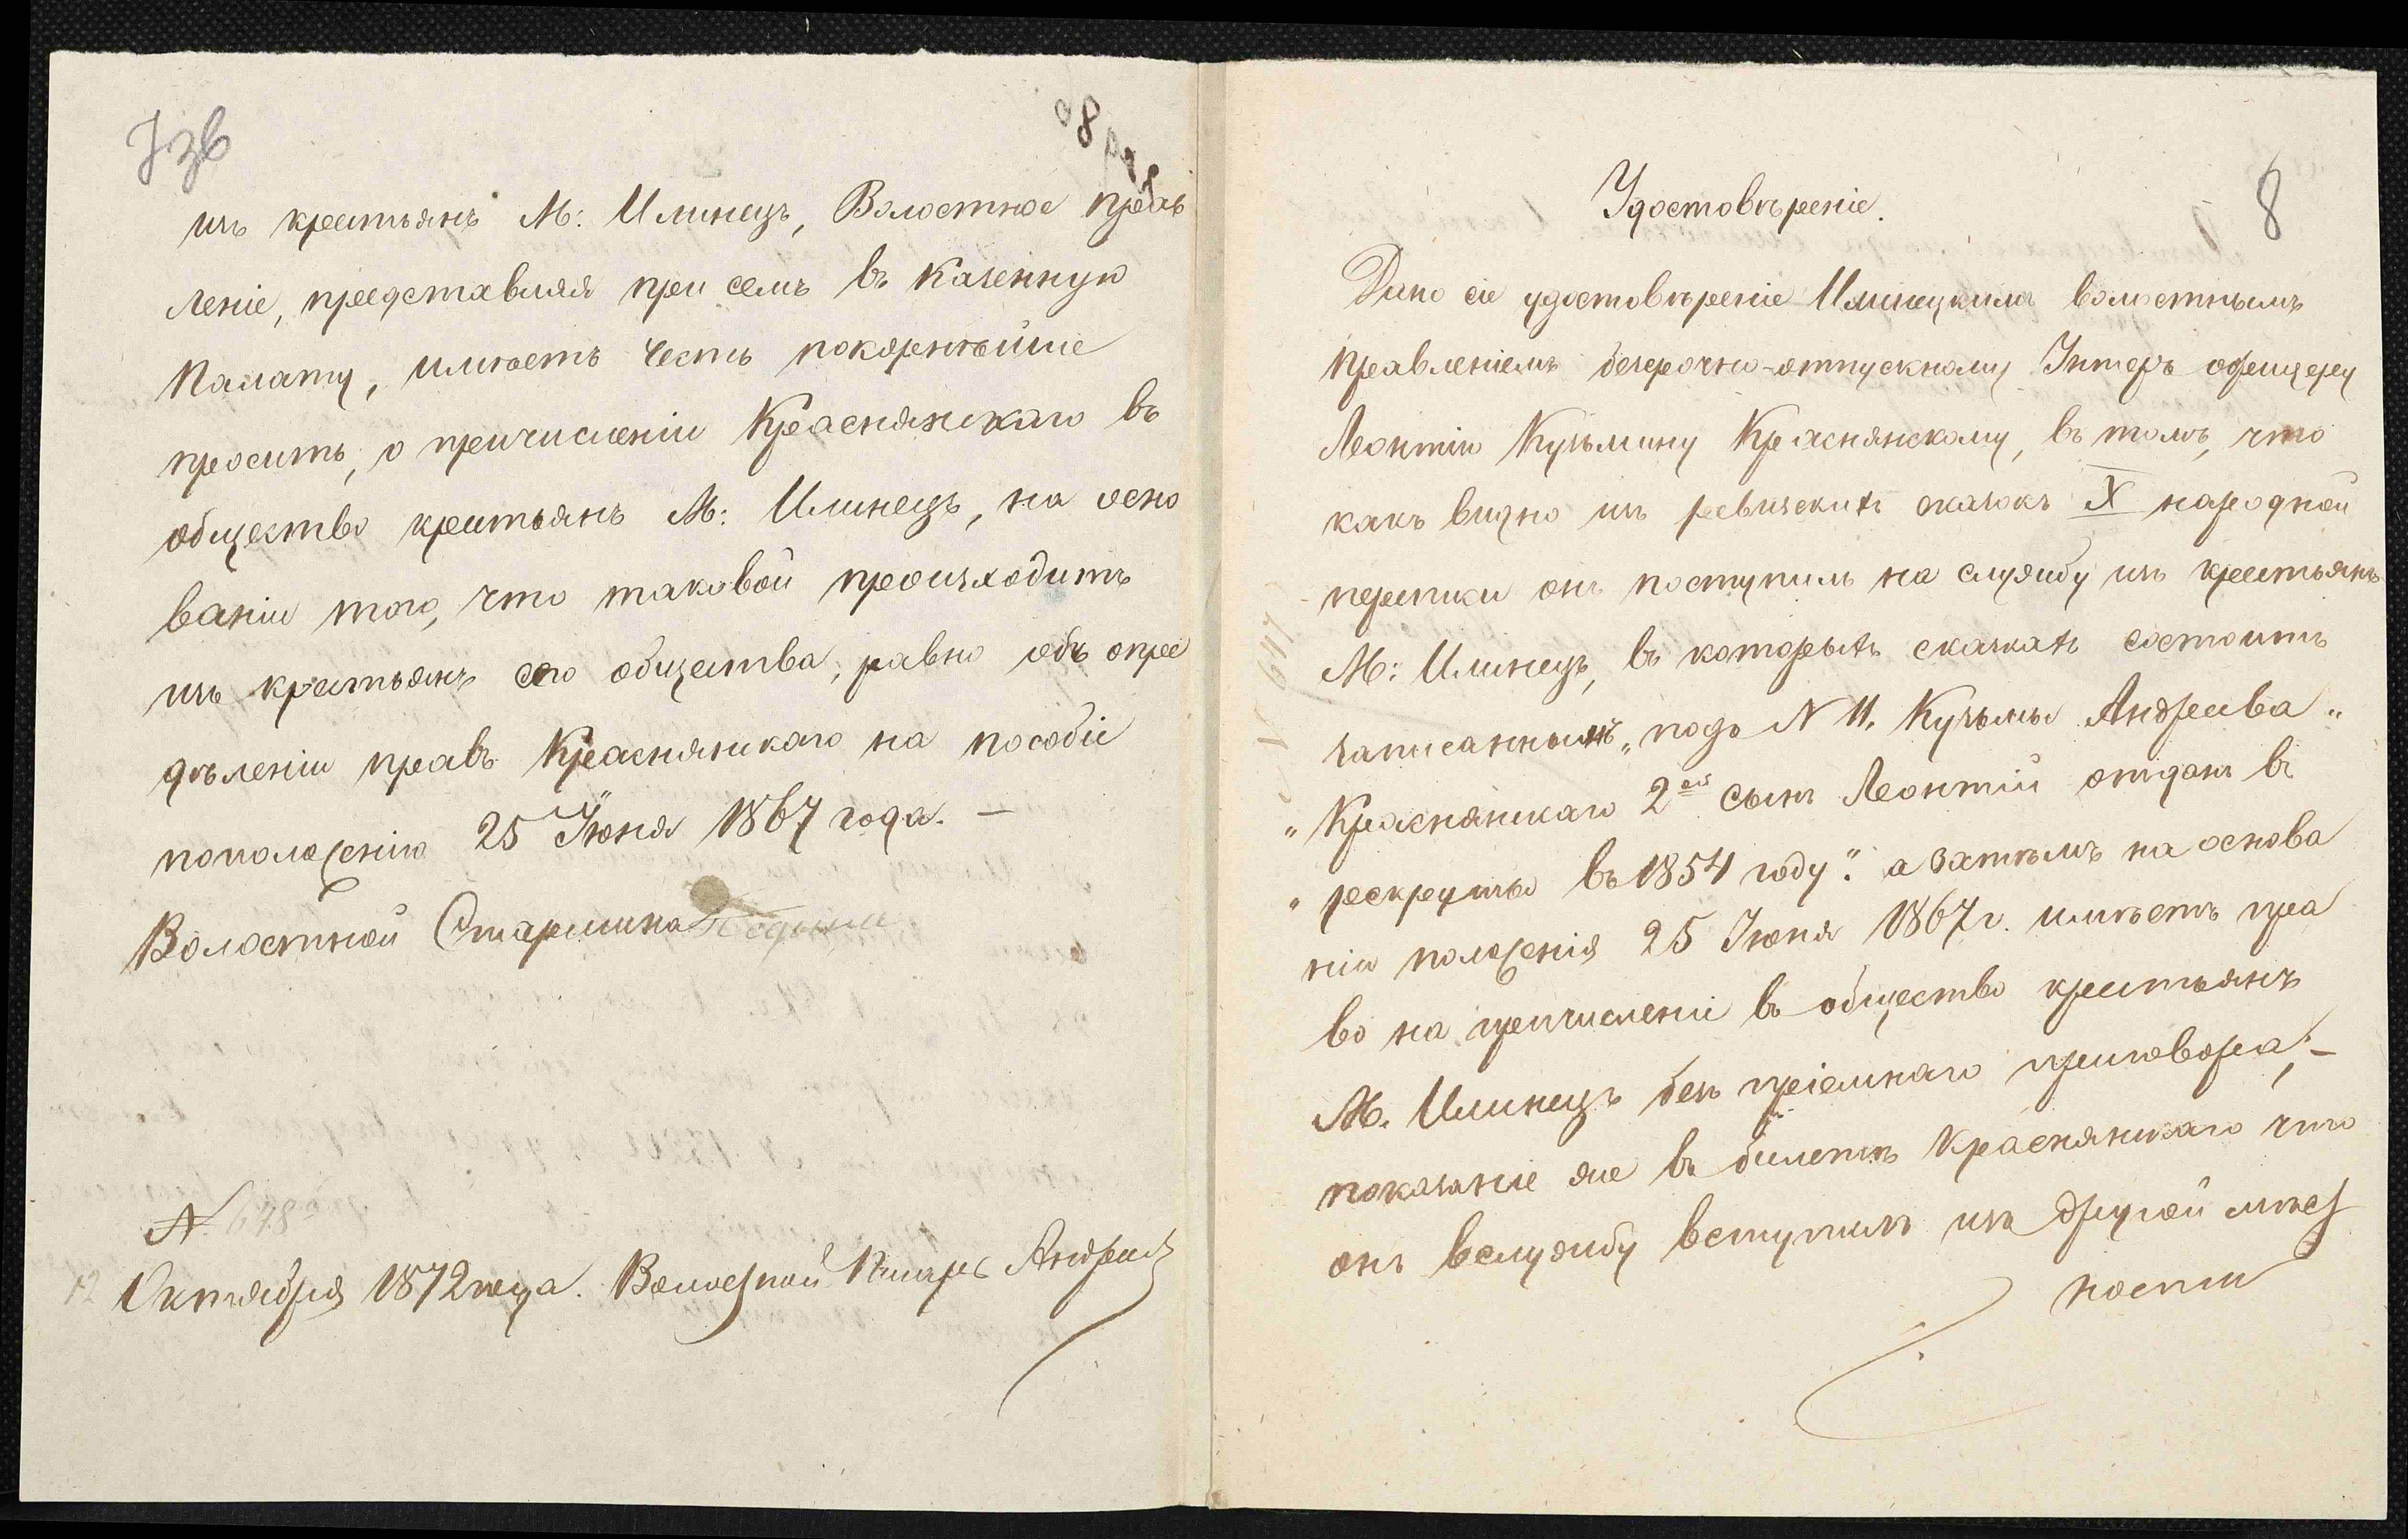 7зв
изъ крестьянъ М: Илинецъ, Волостное прав
леніе, представляя при семъ въ Казенную
Палату, имѣетъ честь покорнѣйше
просить, о причисленіи Краснянскаго въ
общество крестьянъ М: Илинецъ, на осно
ваніи того, что таковой происходитъ
изъ крестьянъ сего общества, равно объ опре
дѣленіи правъ Краснянскаго на пособіе
поположенію 25 Іюня 1867 года. —
Волостной Старшина
N 648
12 Октября 1872 года. Волостной Писарь
8
Удостовѣреніе.
Дано сіе удостовѣреніе Илинецкимъ волостнымъ
правленіемъ безсрочно-отпускному Унтеръ офицеру
Леонтію Кузьмину Краснянскому, въ томъ, что
какъ видно изъ ревизскихъ сказокъ X народной
переписи онъ поступилъ на службу изъ крестьянъ
М: Илинецъ, въ которыхъ сказкахъ состоитъ
записаннымъ „подъ N 11. Кузьмы Андреева „
„ Краснянскаго 2ой сынъ Леонтій отданъ въ
„ рекруты въ 1854 году". а затѣмъ на основа
ніи положенія 25 Іюня 1867 г. имѣетъ пра
во на причисленіе въ общество крестьянъ
М. Илинецъ безъ пріемнаго приговора; —
показаніе же въ билетѣ Краснянскаго что
онъ вслужбу вступилъ изъ другой мѣст
ности